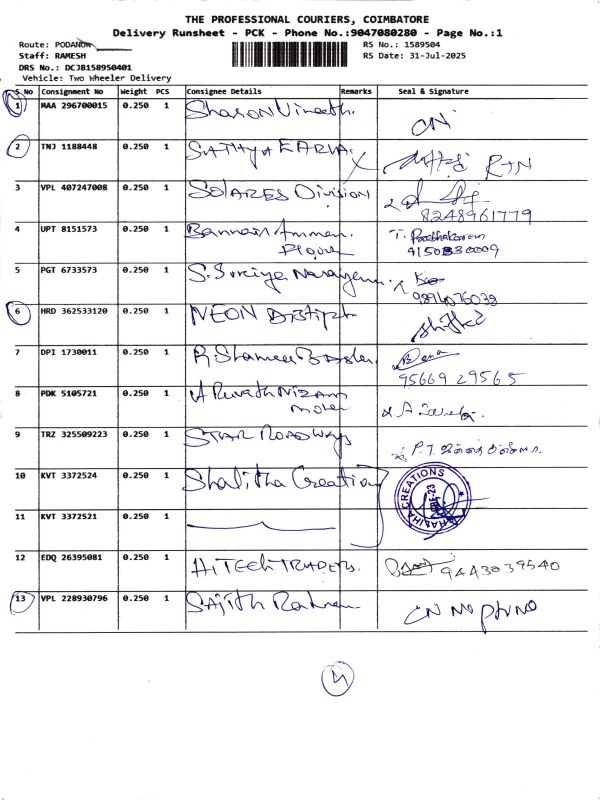 THE PROFESSIONAL COURIERS, COIMBATORE
Delivery Runsheet - PCK - Phone No.:9047080280 - Page No.:1
Route: PODANUR
RS No.: 1589504
Staff: RAMESH
RS Date: 31-Jul-2025
DRS No.: DCJB158950401
Vehicle: Two Wheeler Delivery
S.No Consignment No Weight PCS Consignee Details Remarks Seal & Signature
1 MAA 296700015 0.250 1 Sharon Vineeth. CN
2 TNJ 1188448 0.250 1 SATHYA RTN
3 VPL 407247008 0.250 1 SOLARES Division
8248961779
4 UPT 8151573 0.250 1 Bannari Amman T. Prabhakaran
Flour 9150830009
5 PGT 6733573 0.250 1 S. Suriya Narayena
9894076038
6 HRD 362533120 0.250 1 NEON shifted
7 DPI 1730011 0.250 1 R. Shameer
95669 29565
8 PDK 5105721 0.250 1 A
9 TRZ 325509223 0.250 1 STAR ROADWAYS P.T.
10 KVT 3372524 0.250 1 Shalitha Creation CREATIONS
11 KVT 3372521 0.250 1
12 EDQ 26395081 0.250 1 HiTECH TRADERS. 9443039540
13 VPL 228930796 0.250 1 Sajith CN No PhNO
4